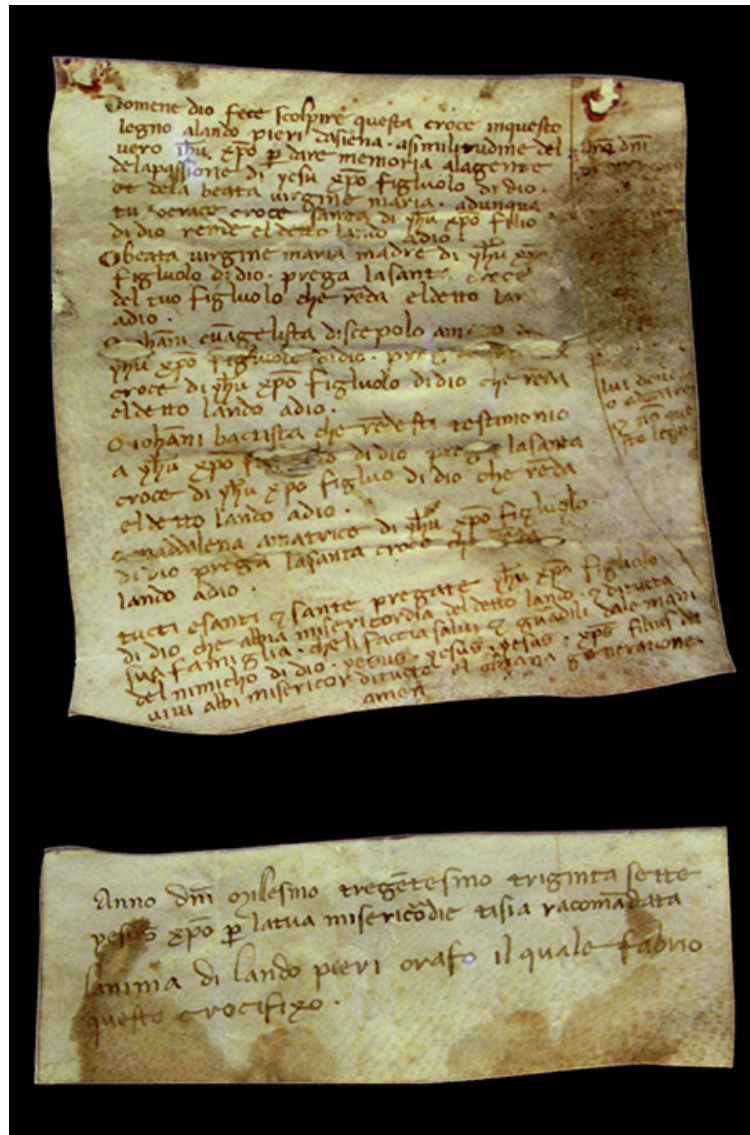 Domene dio fece scolpire questa croce inquesto
legno alando pieri dasiena · asimilitudine del
vero yhu xpo p dare memoria alagente
delapassione di yesu xpo figluolo di dio ·
et dela beata virgine maria · adunqua
tu verace croce santa di yhu xpo filio
di dio rende eldetto lando adio ·
Obeata virgine maria madre di yhu xpo
figluolo di dio · prega lasanta croce
del tuo figluolo che reda eldetto lan
adio ·
evagelista discepolo
yhu xpo figluolo didio ·
croce di yhu xpo figluolo didio che reda
eldetto lando adio ·
Giohani bactista che redesti testimonio
a yhu xpo di dio prega lasanta
croce di yhu xpo figluo di dio che reda
eldetto lando adio ·
maddalena amatrice di yhu xpo figluolo
di dio prega lasanta croce che reda
lando adio ·
tucti esanti 7 sante pregate yhu xpo figluolo
di dio che abbia misericordia deldetto lando · 7 dituta
sua famiglia · cheli faccia salvi 7 guadili dale mani
del nimicho di dio · yesus · yesus · yesus · xps filius dei
vivi abbi misericor dituto el generatione ·
amen
dni
lui
sto legno
Anno dni milesimo tregetesimo triginta sette
yesus xpo p latua misericodie tisia racomadata
lanima di lando pieri orafo il quale fabrio
questo crocifixo ·